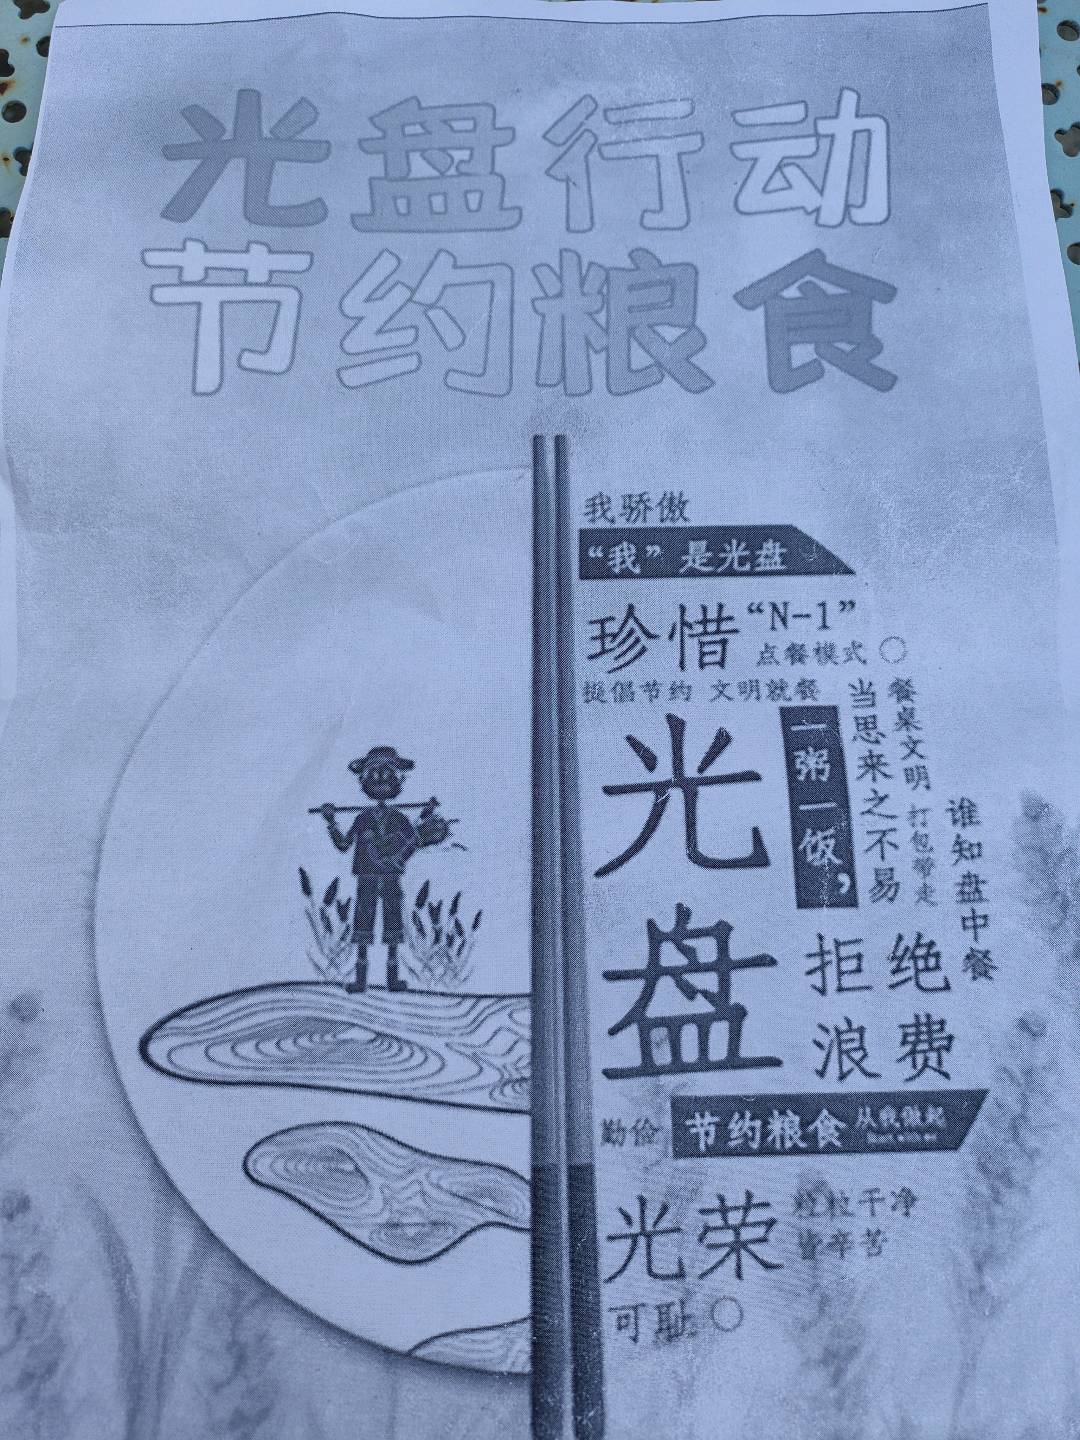 光盘行动
节约粮食
我骄傲
“我”是光盘
珍惜“N-1”
点餐模式
挺倡节约 文明就餐
光盘
一粥一饭，
当思来之不易
餐桌文明 打包带走
谁知盘中餐
拒绝
浪费
勤俭
节约粮食
从我做起
Start with me
光荣
粒粒干净
皆辛苦
可耻